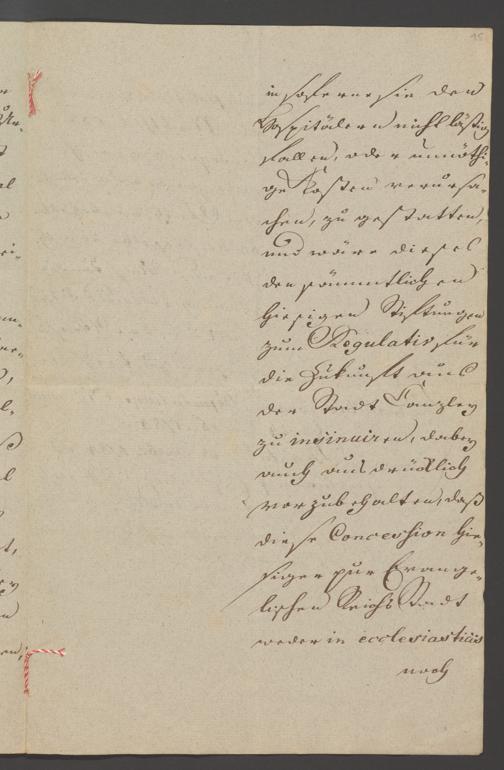 15
insoferne sie den
Hospitälern nicht lästig
fallen, oder unnöthi-
ge Kosten verursa-
chen, zu gestatten,
und wäre dieses
den sämmtlichen
hiesigen Stiftungen
zum Regulativ für
die Zukunft aus
der Stadt Canzley
zu insinuiren, dabey
auch ausdrücklich
vorzubehalten, daß
diese Concession hie-
siger pur Evange-
lischen Reichs Stadt
weder in ecclesiasticis
noch